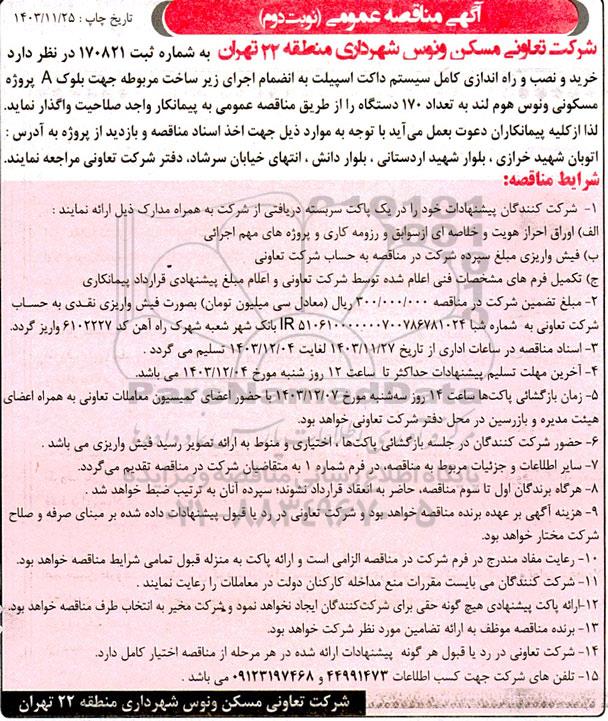 آگهی مناقصه عمومی (نوبت دوم)
تاریخ چاپ : ۱۴۰۳/۱۱/۲۵
شرکت تعاونی مسکن ونوس شهرداری منطقه ۲۲ تهران به شماره ثبت ۱۷۰۸۲۱ در نظر دارد
خرید و نصب و راه اندازی کامل سیستم داکت اسپیلت به انضمام اجرای زیر ساخت مربوطه جهت بلوک A پروژه
مسکونی ونوس هوم لند به تعداد ۱۷۰ دستگاه را از طریق مناقصه عمومی به پیمانکار واجد صلاحیت واگذار نماید.
لذا ازکلیه پیمانکاران دعوت بعمل می‌آید با توجه به موارد ذیل جهت اخذ اسناد مناقصه و بازدید از پروژه به آدرس :
اتوبان شهید خرازی ، بلوار شهید اردستانی ، بلوار دانش ، انتهای خیابان سرشاد، دفتر شرکت تعاونی مراجعه نمایند.
شرایط مناقصه:
۱- شرکت کنندگان پیشنهادات خود را در یک پاکت سربسته دریافتی از شرکت به همراه مدارک ذیل ارائه نمایند :
الف) اوراق احراز هویت و خلاصه ای ازسوابق و رزومه کاری و پروژه های مهم اجرائی
ب) فیش واریزی مبلغ سپرده شرکت در مناقصه به حساب شرکت تعاونی
ج) تکمیل فرم های مشخصات فنی اعلام شده توسط شرکت تعاونی و اعلام مبلغ پیشنهادی قرارداد پیمانکاری
۲- مبلغ تضمین شرکت در مناقصه ۳۰۰/۰۰۰/۰۰۰ ریال (معادل سی میلیون تومان) بصورت فیش واریزی نقدی به حساب
شرکت تعاونی به شماره شبا IR ۵۱۰۶۱۰۰۰۰۰۰۰۷۰۰۷۸۶۷۸۱۰۲۴ بانک شهر شعبه شهرک راه آهن کد ۶۱۰۲۲۲۷ واریز گردد.
۳- اسناد مناقصه در ساعات اداری از تاریخ ۱۴۰۳/۱۱/۲۷ لغایت ۱۴۰۳/۱۲/۰۴ تسلیم می گردد .
۴- آخرین مهلت تسلیم پیشنهادات حداکثر تا ساعت ۱۲ روز شنبه مورخ ۱۴۰۳/۱۲/۰۴ می باشد.
۵- زمان بازگشائی پاکت‌ها ساعت ۱۴ روز سه‌شنبه مورخ ۱۴۰۳/۱۲/۰۷ با حضور اعضای کمیسیون معاملات تعاونی به همراه اعضای
هیئت مدیره و بازرسین در محل دفتر شرکت تعاونی خواهد بود.
۶- حضور شرکت کنندگان در جلسه بازگشائی پاکت‌ها ، اختیاری و منوط به ارائه تصویر رسید فیش واریزی می باشد .
۷- سایر اطلاعات و جزئیات مربوط به مناقصه، در فرم شماره ۱ به متقاضیان شرکت در مناقصه تقدیم می‌گردد.
۸- هرگاه برندگان اول تا سوم مناقصه، حاضر به انعقاد قرارداد نشوند؛ سپرده آنان به ترتیب ضبط خواهد شد .
۹- هزینه آگهی بر عهده برنده مناقصه خواهد بود و شرکت تعاونی در رد یا قبول پیشنهادات داده شده بر مبنای صرفه و صلاح
شرکت مختار خواهد بود.
۱۰- رعایت مفاد مندرج در فرم شرکت در مناقصه الزامی است و ارائه پاکت به منزله قبول تمامی شرایط مناقصه خواهد بود.
۱۱- شرکت کنندگان می بایست مقررات منع مداخله کارکنان دولت در معاملات را رعایت نمایند .
۱۲-ارائه پاکت پیشنهادی هیچ گونه حقی برای شرکت‌کنندگان ایجاد نخواهد نمود و شرکت مخیر به انتخاب طرف مناقصه خواهد بود.
۱۳- برنده مناقصه موظف به ارائه تضامین مورد نظر شرکت خواهد بود.
۱۴- شرکت تعاونی در رد یا قبول هر گونه پیشنهادات ارائه شده در هر مرحله از مناقصه اختیار کامل دارد.
۱۵- تلفن های شرکت جهت کسب اطلاعات ۴۴۹۹۱۴۷۳ و ۰۹۱۲۳۱۹۷۴۶۸ می باشد .
شرکت تعاونی مسکن ونوس شهرداری منطقه ۲۲ تهران
ParsNamadData